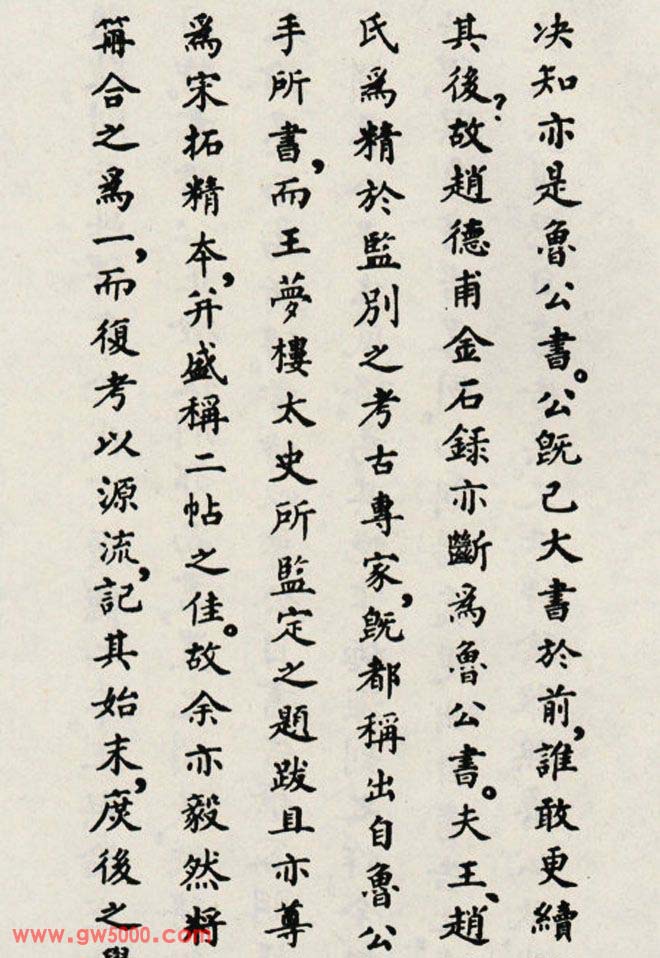 决知亦是魯公書。公既已大書於前,誰敢更續
其後?故趙德甫金石録亦斷爲魯公書。夫王、趙
氏爲精於監别之考古專家,既都稱出自魯公
手所書,而王夢樓太史所監定之題跋且亦尊
爲宋拓精本,并盛稱二帖之佳。故余亦毅然将
篇合之爲一,而復考以源流,記其始末,庹後之
www.gw5000.com